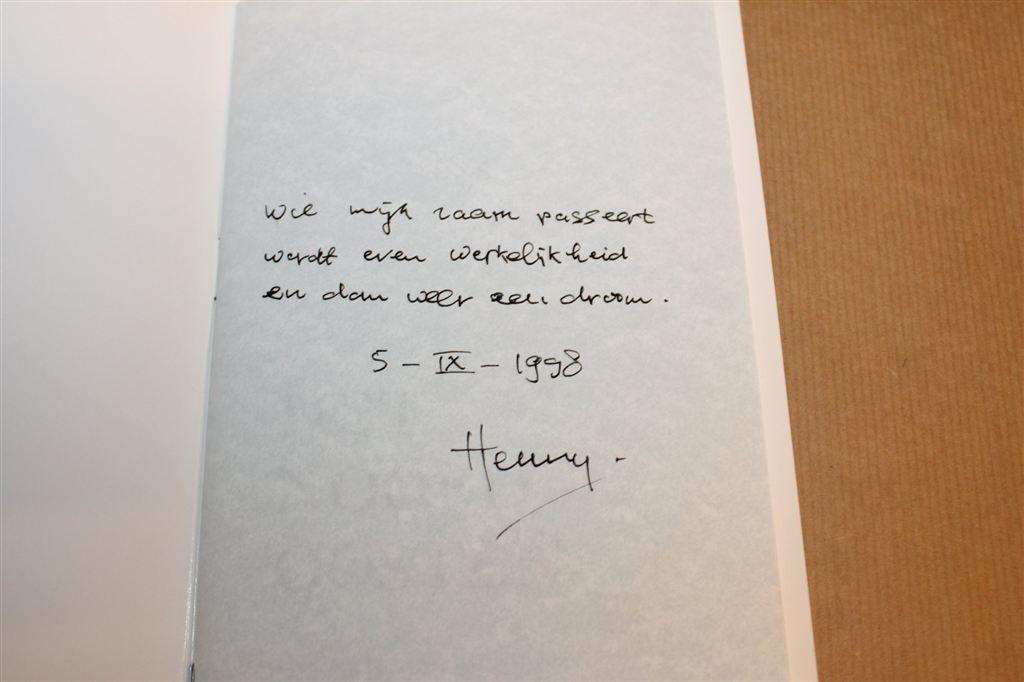 Wie mijn raam passeert
wordt even werkelijkheid
en dan weer een droom.
5 - IX - 1998
Henny.